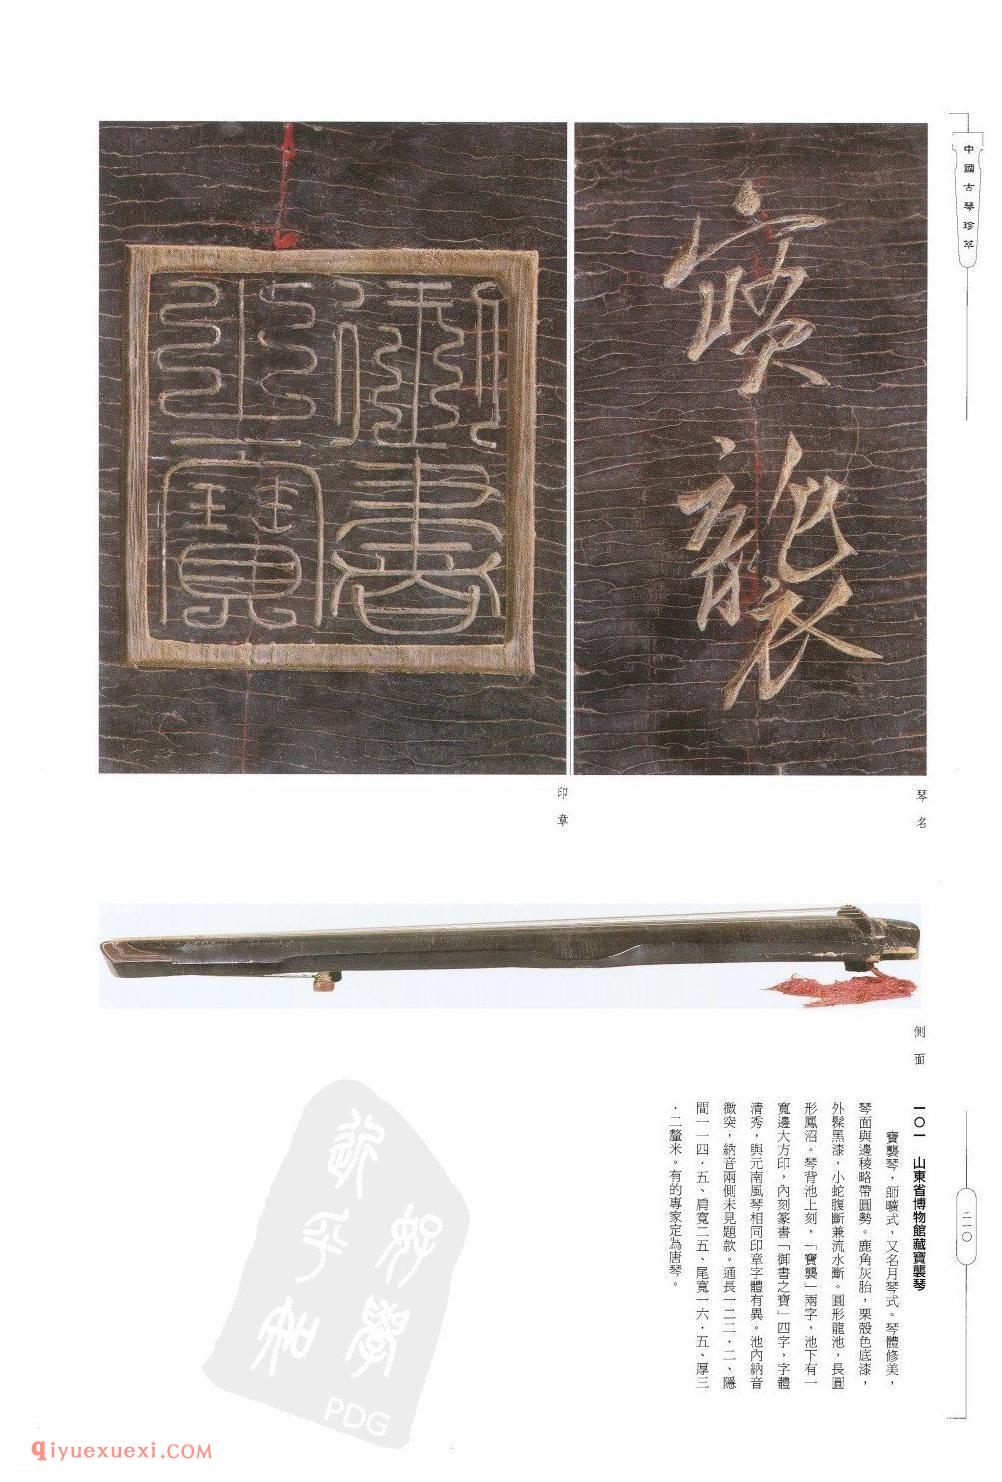 中國古琴珍萃
寶襲
御書
之寶
琴名
印章
側面
二一〇
一〇一　山東省博物館藏寶襲琴
寶襲琴，師曠式，又名月琴式。琴體修美，
琴面與邊稜略帶圓勢。鹿角灰胎，栗殼色底漆，
外髹黑漆，小蛇腹斷兼流水斷。圓形龍池，長圓
形鳳沼。琴背池上刻，「寶襲」兩字，池下有一
寬邊大方印，內刻篆書「御書之寶」四字，字體
清秀，與元南風琴相同印章字體有異。池內納音
微突，納音兩側未見題款。通長一二二．二、隱
間一一四．五、肩寬二五、尾寬一六．五、厚三
．二釐米。有的專家定為唐琴。
PDG
qiyuexuexi.com